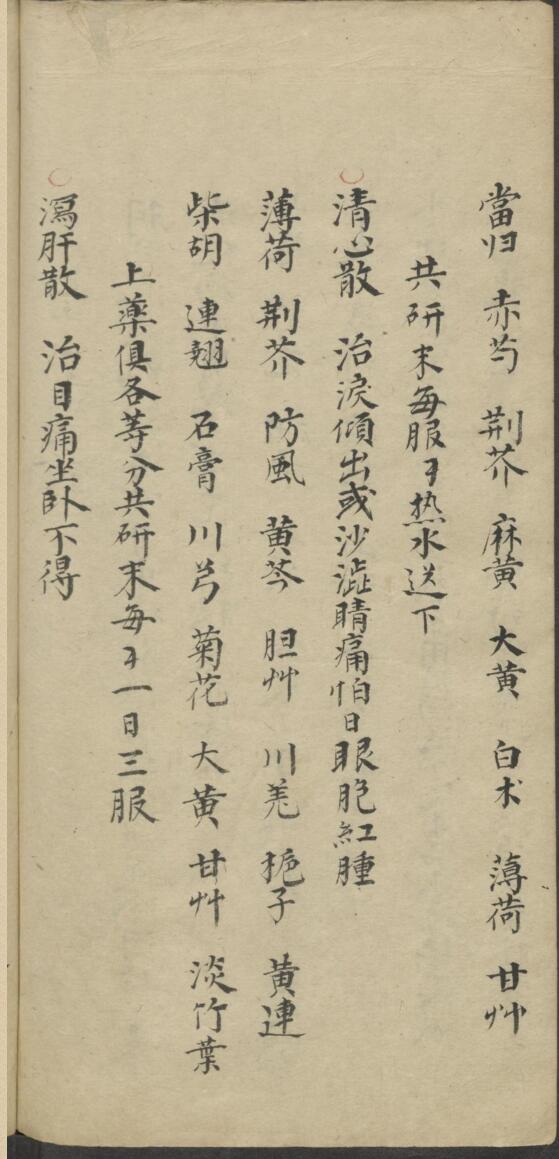 當归 赤芍 荆芥 麻黄 大黄 白术 薄荷 甘艸
共研末每服才热水送下
清心散 治淚傾出或沙澁睛痛怕日眼胞紅腫
薄荷 荆芥 防風 黄芩 胆艸 川羗 栀子 黄連
柴胡 連翹 石膏 川芎 菊花 大黄 甘艸 淡竹葉
上藥俱各等分共研末每才一日三服
瀉肝散 治目痛坐卧不得